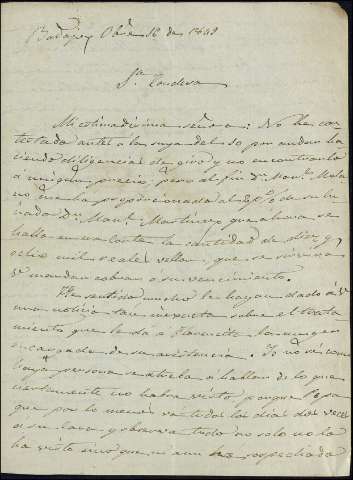 Badajoz Obre 16 de 1849
Sra Condesa
Mi estimadisima señora: No he con-
testado antes a la suya del 30 por andar ha-
ciendo diligencias de giro y no encontrarlo
á ningun precio; pero al fin Dn Manl Mola
no me ha proporcionado al
Dn Manl Martinez que ahora se
halla en esa Corte la cantidad de diez y
ocho mil reales vellon, que se servira
V. mandar cobrar á su vencimiento.
He sentido mucho le hayan dado á V.
una noticia tan inexacta sobre el trata
miento que le da a la muger
encargada de su asistencia. Yo no sé como
haya persona se atreba a hablar de lo que
ciertamente no habra visto porque Pepa
que por lo menos va todos los dias dos veces
a su casa y observa todo no solo no lo
ha visto sino que ni aun ha sospechado